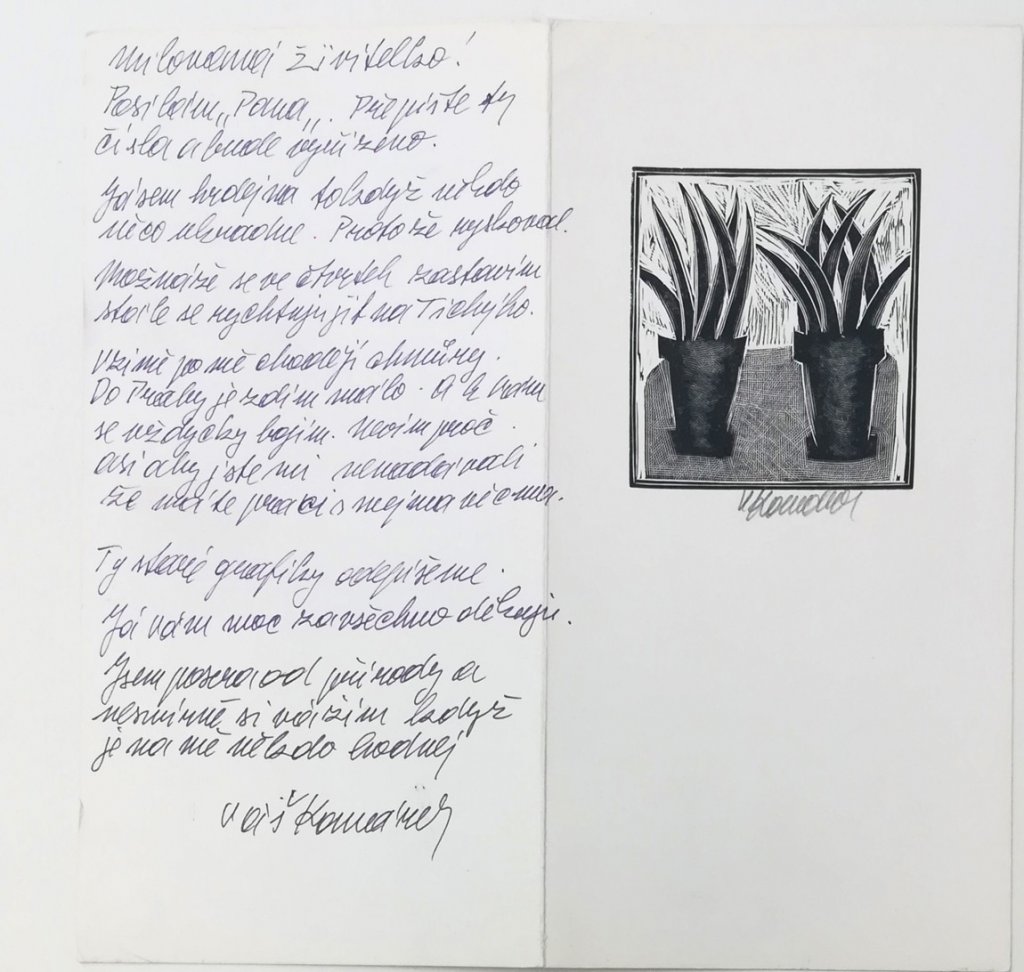 Milovaná živitelko!
Posílám „Pana„. Přepište ty
čísla a bude vyřízeno.
Já sem hrdej na to když někdo
něco ukradne. Protože vyskoval.
Možná že se ve čtvrtek zastavím
stále se vychtuju jít na Tichýho.
V zimě po mě chodějí chmůry.
Do Prahy jezdím málo. A k vám
se vždycky bojím. Nevím proč.
Asi aby jste mi nenadávali
že máte práci s mejma věcma.
Ty staré grafiky odepíšeme.
Já vám moc za všechno děkuju.
Jsem posera od přírody a
nesmírně si vážím když
je na mě někdo hodnej
Váš Komárek
VKomárek